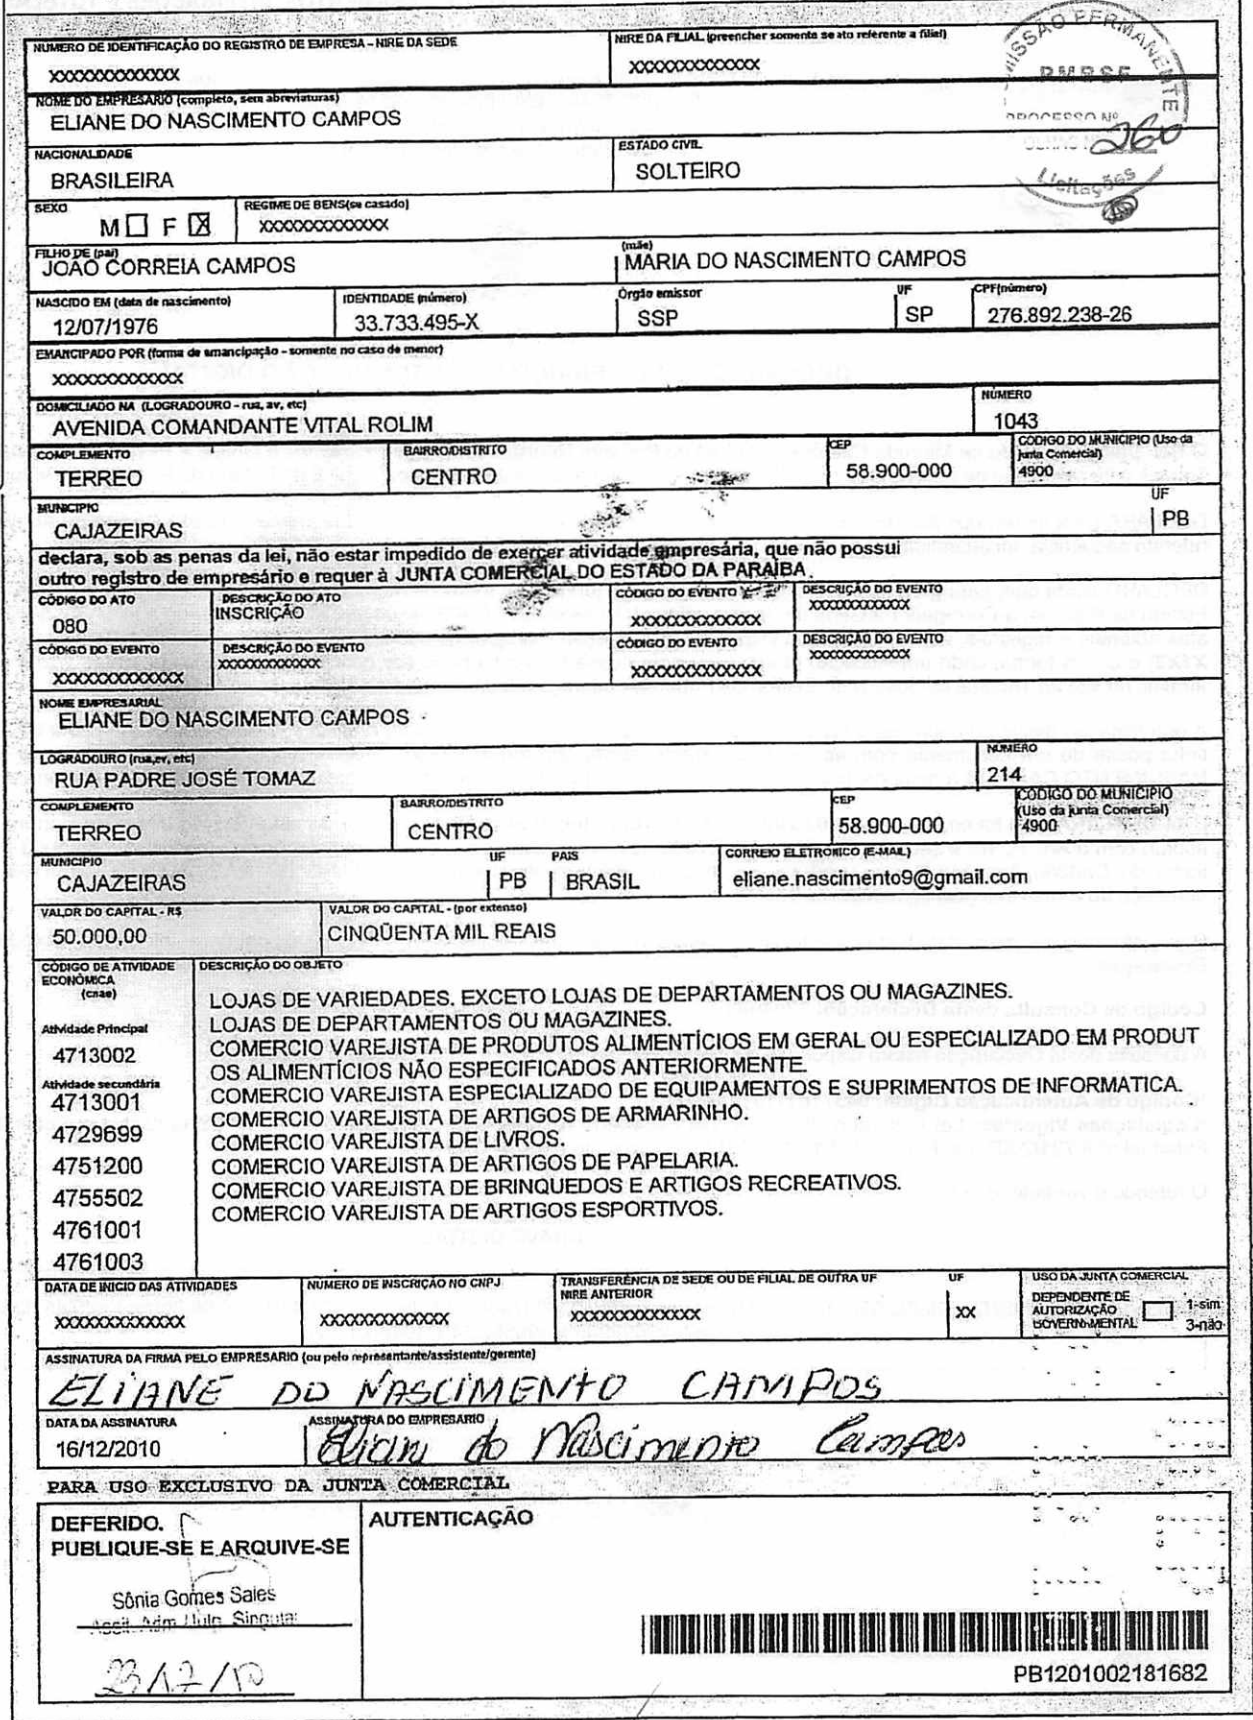 NUMERO DE IDENTIFICAÇÃO DO REGISTRO DE EMPRESA - NIRE DA SEDE
XXXXXXXXXXXXX
NIRE DA FILIAL (preencher somente se ato referente a filial)
XXXXXXXXXXXXX
PERMANENTE
PROCESSO Nº
260
Licitações
NOME DO EMPRESARIO (completo, sem abreviaturas)
ELIANE DO NASCIMENTO CAMPOS
NACIONALIDADE
BRASILEIRA
ESTADO CIVIL
SOLTEIRO
SEXO
M F X
REGIME DE BENS(se casado)
XXXXXXXXXXXXX
FILHO DE (pai)
JOAO CORREIA CAMPOS
(mãe)
MARIA DO NASCIMENTO CAMPOS
NASCIDO EM (data de nascimento)
12/07/1976
IDENTIDADE (número)
33.733.495-X
Órgão emissor
SSP
UF
SP
CPF(número)
276.892.238-26
EMANCIPADO POR (forma de emancipação - somente no caso de menor)
XXXXXXXXXXXXX
DOMICILIADO NA (LOGRADOURO - rua, av, etc)
AVENIDA COMANDANTE VITAL ROLIM
NÚMERO
1043
COMPLEMENTO
TERREO
BAIRRO/DISTRITO
CENTRO
CEP
58.900-000
CODIGO DO MUNICIPIO (Uso da junta Comercial)
4900
MUNICIPIO
CAJAZEIRAS
UF
PB
declara, sob as penas da lei, não estar impedido de exercer atividade empresária, que não possui
outro registro de empresário e requer à JUNTA COMERCIAL DO ESTADO DA PARAIBA
CÓDIGO DO ATO
080
DESCRIÇÃO DO ATO
INSCRIÇÃO
CÓDIGO DO EVENTO
XXXXXXXXXXXXX
DESCRIÇÃO DO EVENTO
XXXXXXXXXXXXX
CÓDIGO DO EVENTO
XXXXXXXXXXXXX
DESCRIÇÃO DO EVENTO
XXXXXXXXXXXXX
CÓDIGO DO EVENTO
XXXXXXXXXXXXX
DESCRIÇÃO DO EVENTO
XXXXXXXXXXXXX
NOME EMPRESARIAL
ELIANE DO NASCIMENTO CAMPOS
LOGRADOURO (rua,av, etc)
RUA PADRE JOSÉ TOMAZ
NÚMERO
214
COMPLEMENTO
TERREO
BAIRRO/DISTRITO
CENTRO
CEP
58.900-000
CODIGO DO MUNICIPIO
(Uso da junta Comercial)
4900
MUNICIPIO
CAJAZEIRAS
UF
PB
PAIS
BRASIL
CORREIO ELETRONICO (E-MAIL)
eliane.nascimento9@gmail.com
VALOR DO CAPITAL - R$
50.000,00
VALOR DO CAPITAL - (por extenso)
CINQÜENTA MIL REAIS
CÓDIGO DE ATIVIDADE
ECONÔMICA
(cnae)
Atividade Principal
4713002
Atividade secundária
4713001
4729699
4751200
4755502
4761001
4761003
DESCRIÇÃO DO OBJETO
LOJAS DE VARIEDADES. EXCETO LOJAS DE DEPARTAMENTOS OU MAGAZINES.
LOJAS DE DEPARTAMENTOS OU MAGAZINES.
COMERCIO VAREJISTA DE PRODUTOS ALIMENTÍCIOS EM GERAL OU ESPECIALIZADO EM PRODUT
OS ALIMENTÍCIOS NÃO ESPECIFICADOS ANTERIORMENTE.
COMERCIO VAREJISTA ESPECIALIZADO DE EQUIPAMENTOS E SUPRIMENTOS DE INFORMATICA.
COMERCIO VAREJISTA DE ARTIGOS DE ARMARINHO.
COMERCIO VAREJISTA DE LIVROS.
COMERCIO VAREJISTA DE ARTIGOS DE PAPELARIA.
COMERCIO VAREJISTA DE BRINQUEDOS E ARTIGOS RECREATIVOS.
COMERCIO VAREJISTA DE ARTIGOS ESPORTIVOS.
DATA DE INICIO DAS ATIVIDADES
XXXXXXXXXXXXX
NUMERO DE INSCRIÇÃO NO CNPJ
XXXXXXXXXXXXX
TRANSFERÊNCIA DE SEDE OU DE FILIAL DE OUTRA UF
NIRE ANTERIOR
XXXXXXXXXXXXX
UF
XX
USO DA JUNTA COMERCIAL
DEPENDENTE DE
AUTORIZAÇÃO
GOVERNAMENTAL
1-sim
3-não
ASSINATURA DA FIRMA PELO EMPRESARIO (ou pelo representante/assistente/gerente)
ELIANE DO NASCIMENTO CAMPOS
DATA DA ASSINATURA
16/12/2010
ASSINATURA DO EMPRESARIO
Eliane do Nascimento Campos
PARA USO EXCLUSIVO DA JUNTA COMERCIAL
DEFERIDO.
PUBLIQUE-SE E ARQUIVE-SE
Sônia Gomes Sales
23/12/10
AUTENTICAÇÃO
PB1201002181682